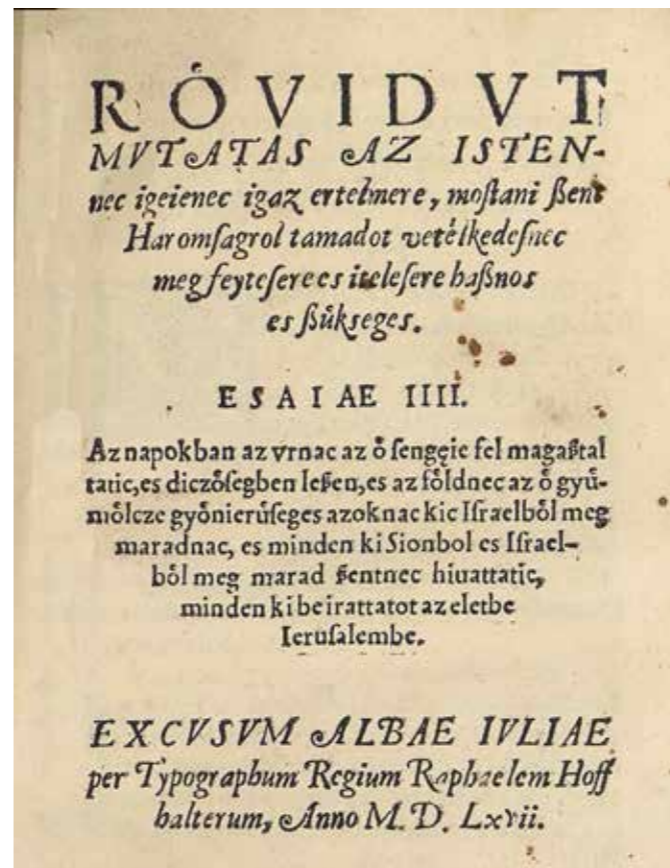 RÓVIDVT
MVTATAS AZ ISTEN-
nec igeienec igaz ertelmere, moſtani ßent
Haromſagrol tamadot vetélkedeſnec
meg feyteſere es iteleſere haßnos
es ßúkseges.
ESAIAE IIII.
Az napokban az vrnac az ő ſengęie fel magaßtal
tatic, es diczőſegben leßen, es az főldnec az ő gyű-
mőlcze győnierűſeges azoknac kic Iſraelből meg
maradnac, es minden ki Sionbol es Iſrael-
ből meg marad ßentnec hiuattatic,
minden ki beirattatot az eletbe
Ieruſalembe.
EXCVSVM ALBAE IVLIAE
per Typographum Regium Raphaelem Hoff
halterum, Anno M. D. Lxvii.